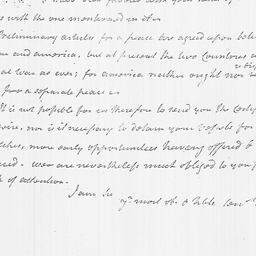 us with the one mentioned in it
Preliminary articles for a peace are agreed upon betw
and america, but at present the two Countries a
at war as ever; for america neither ought nor
for a separate peace
It is not possible for us therefore to send you the
nor is it necessary to detain your Vessels for
more early opportunities having offered
we are nevertheless much obliged to you
of attention.
I am &c
yr. most ob. & hble serv